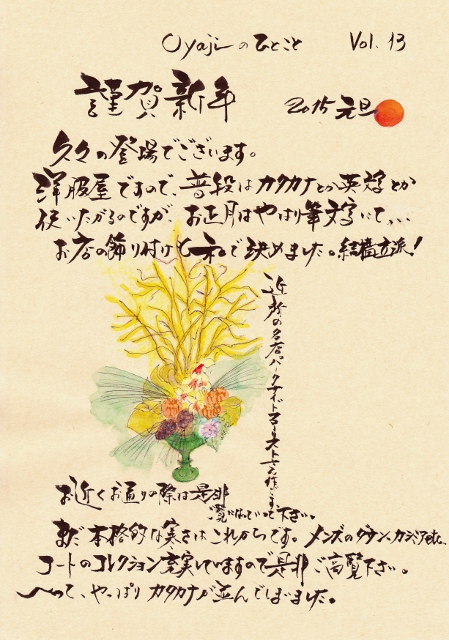 Oyajiのひとこと Vol. 13
謹賀新年 2015 元旦
久々の登場でございます。
洋服屋ですので、普段はカタカナとか英語とか
使いたがるのですが お正月はやはり筆文字にて、、、
お店の飾り付けも和で決めました。結構立派!
近所の名店パークサイドフローリスト
お近くお通りの際は是非
ご覧になっていって下さい。
まだ本格的な寒さはこれからです。メンズのダウン、カシミア etc.
コートのコレクション充実していますので是非ご高覧下さい。
へへって、やっぱりカタカナが並んでしまいました。